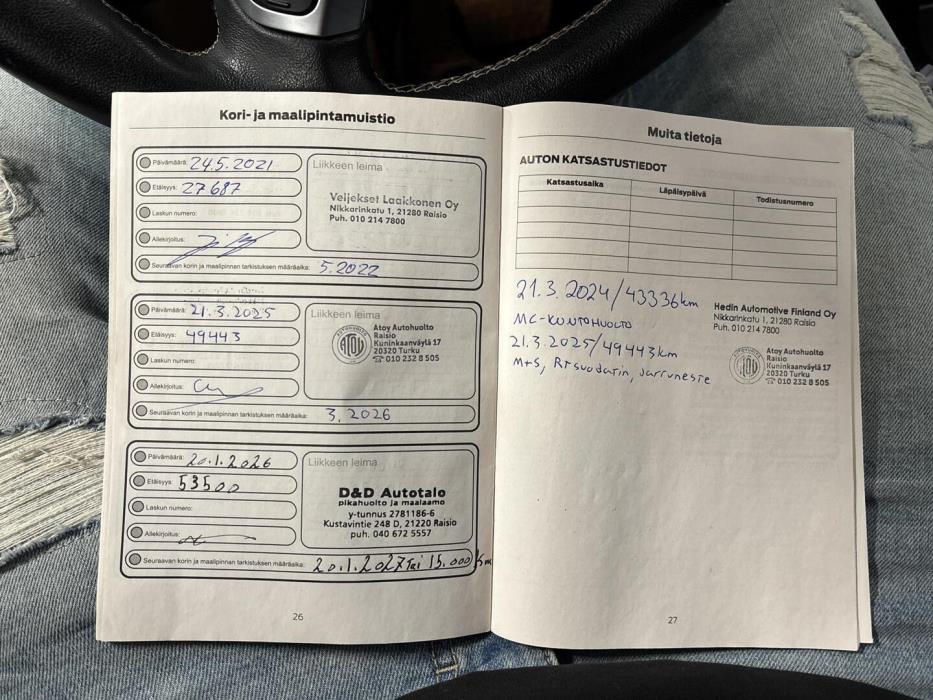 Kori- ja maalipintamuistio
Päivämäärä: 24.5.2021
Etäisyys: 27687
Laskun numero:
Allekirjoitus:
Liikkeen leima
Veljekset Laakkonen Oy
Nikkarinkatu 1, 21280 Raisio
Puh. 010 214 7800
Seuraavan korin ja maalipinnan tarkistuksen määräaika: 5.2022
Päivämäärä: 21.3.2025
Etäisyys: 49443
Laskun numero:
Allekirjoitus:
Liikkeen leima
ATOY
Atoy Autohuolto
Raisio
Kuninkaanväylä 17
20320 Turku
☎ 010 232 8 505
Seuraavan korin ja maalipinnan tarkistuksen määräaika: 3.2026
Päivämäärä: 20.1.2026
Etäisyys: 53500
Laskun numero:
Allekirjoitus:
Liikkeen leima
D&D Autotalo
pikahuolto ja maalaamo
y-tunnus 2781186-6
Kustavintie 248 D, 21220 Raisio
puh. 040 672 5557
Seuraavan korin ja maalipinnan tarkistuksen määräaika: 20.1.2027 Tai 15.000/km
26
Muita tietoja
AUTON KATSASTUSTIEDOT
Katsastusaika Läpäisypäivä Todistusnumero
21.3.2024/43336km
MC-KUNTOHUOLTO
Hedin Automotive Finland Oy
Nikkarinkatu 1, 21280 Raisio
Puh. 010 214 7800
21.3.2025/49443km
M+S, RTsuodatin, Jarruneste
Atoy Autohuolto
Raisio
Kuninkaanväylä 17
20320 Turku
☎ 010 232 8 505
27